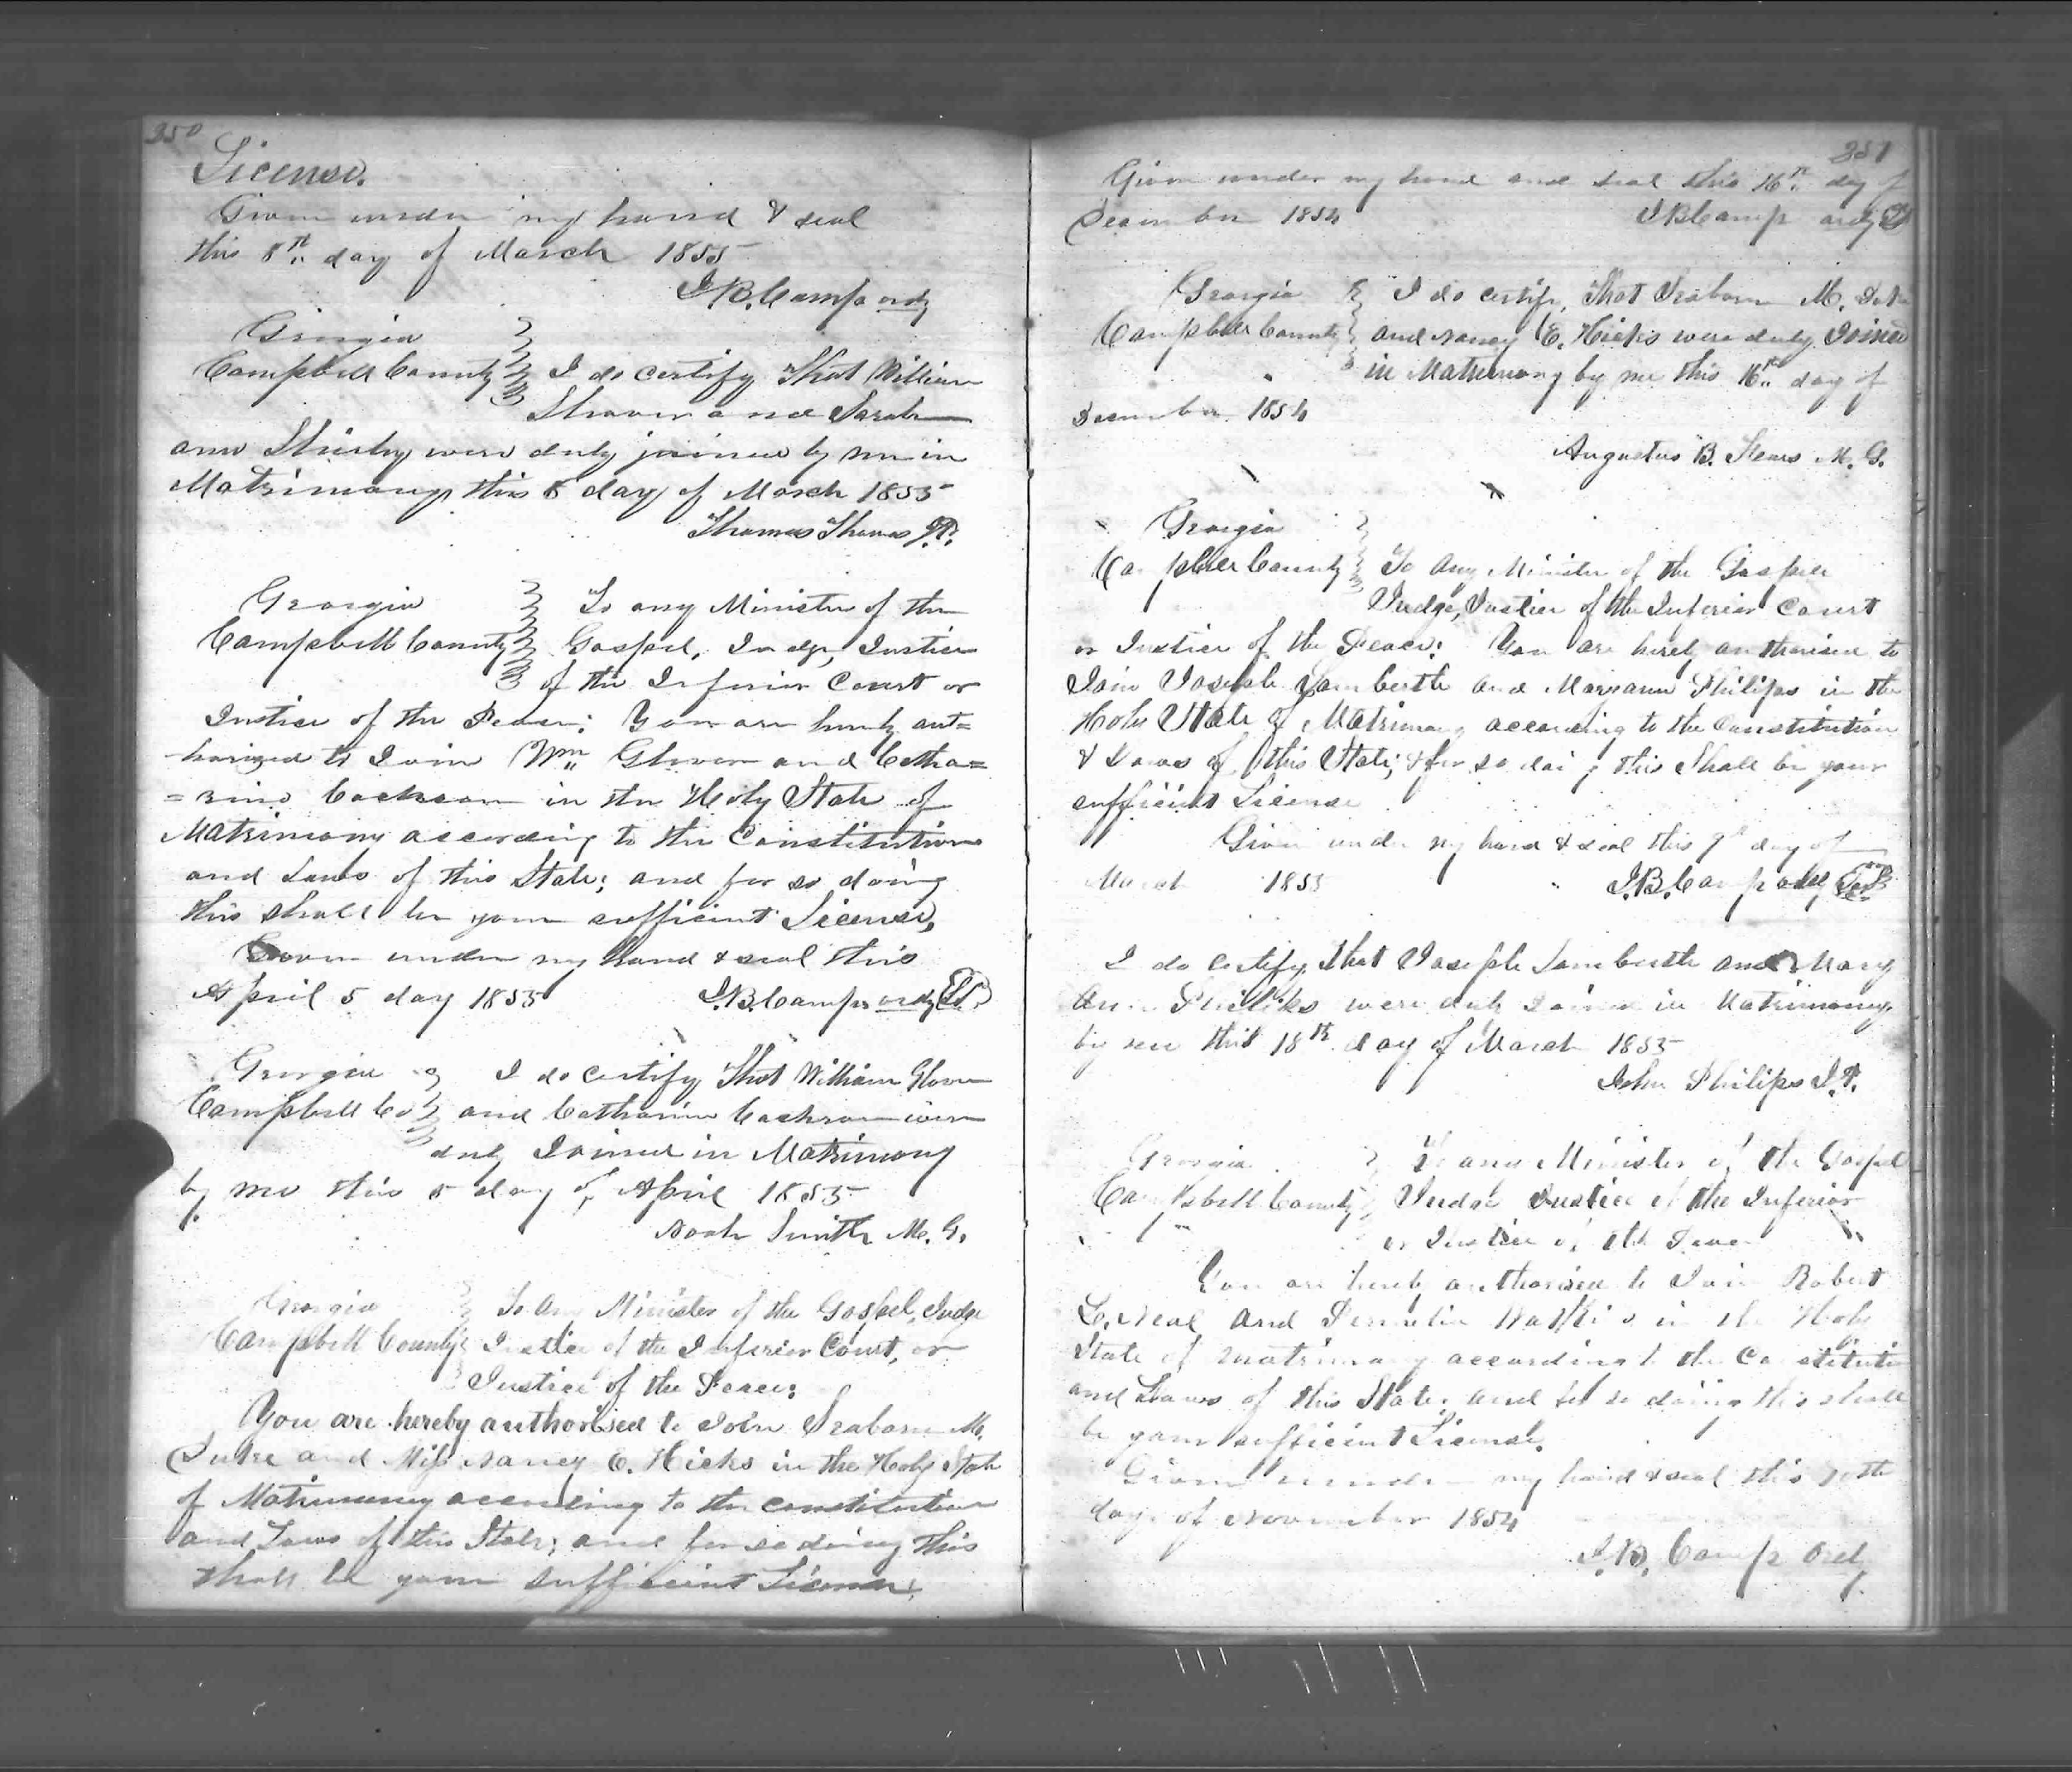 350
License.
Given under my hand & seal
this 8th day of March 1855
J.B. Camp ordy
Georgia
Campbell County I do certify That William
and Sarah
ann were duly joined by me in
Matrimony this 8 day of March 1855
Thomas Thomas J.P.
Georgia To any Minister of the
Campbell County Gospel, Judge, Justice
of the Inferior Court or
Justice of the Peace: You are hereby aut=
horized to Join Wm Glover and Catha=
=rine Cochran in the Holy State of
Matrimony according to the Constitution
and Laws of this State; and for so doing
this shall be your sufficient License,
Given under my hand & seal this
April 5 day 1855 J.B. Camp ordy L.S.
Georgia I do certify That William Glover
Campbell Co and Catharine Cochran were
duly Joined in Matrimony
by me this 5 day of April 1855
Noah Smith M.G.
Georgia To any Minister of the Gospel, Judge
Campbell County Justice of the Inferior Court, or
Justice of the Peace:
You are hereby authorised to Join Seaborn M.
Duke and Miss Nancy E. Hicks in the Holy State
of Matrimony according to the constitution
and Laws of this State; and for so doing this
shall be your sufficient License;
351
Given under my hand and seal this 16th day of
December 1854 J B Camp ordy L.S.
Georgia I do certify, That Seaborn M. Duke
Campbell County and Nancy E. Hicks were duly Joined
in Matrimony by me this 16th day of
December 1854
Augustus B. M.G.
Georgia
Campbell County To any Minister of the Gospel
Judge, Justice of the Inferior Court
or Justice of the Peace: You are hereby authorised to
Join Joseph Lamberth and Maryann Philips in the
Holy State of Matrimony according to the Constitution
& Laws of this State; & for so doing this Shall be your
sufficient License
Given under my hand & seal this 9th day of
March 1855 J.B. Camp ordy
I do certify, that Joseph Lamberth and Mary
Ann were duly Joined in Matrimony
by me this 18th day of March 1855
John Philips J.P.
Georgia To any Minister of the Gospel
Campbell County Judge Justice of the Inferior
or Justice of the Peace
You are hereby authorised to Join Robert
Neal and in the Holy
State of matrimony according to the Constitution
and Laws of this State; and for so doing this shall
be your sufficient License.
Given under my hand & seal this
day of November 1854
J.B. Camp Ordy